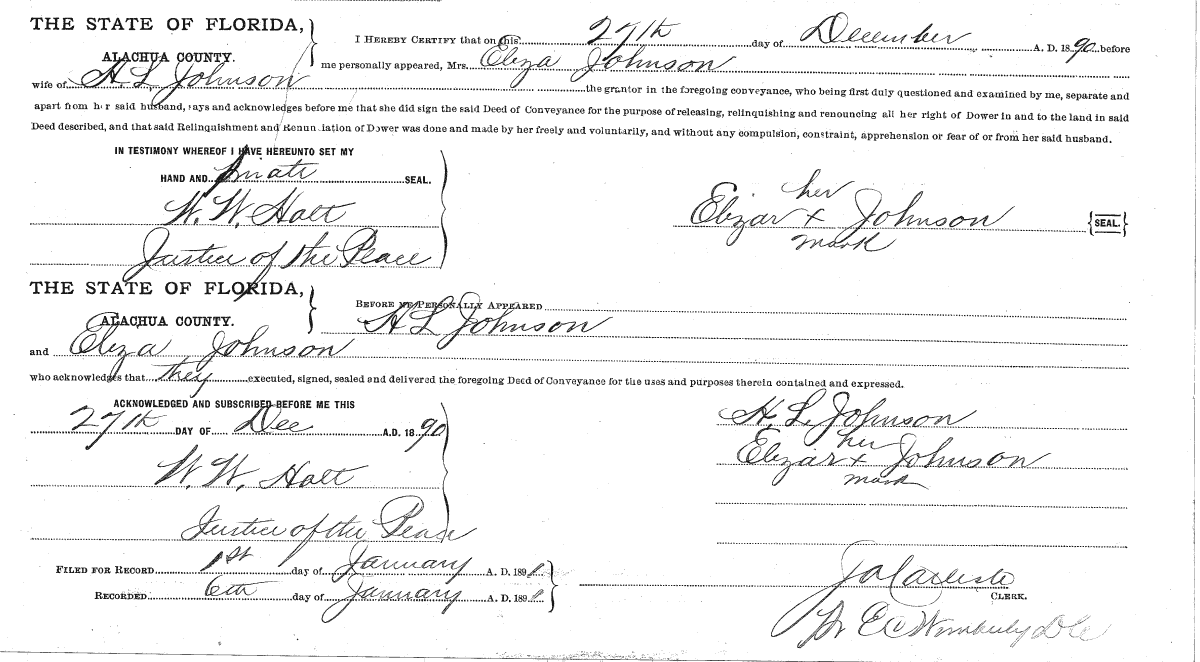 THE STATE OF FLORIDA,
ALACHUA COUNTY.
I HEREBY CERTIFY that on this 27th day of December A. D. 1890 before
me personally appeared, Mrs. Eliza Johnson
wife of H. L. Johnson the grantor in the foregoing conveyance, who being first duly questioned and examined by me, separate and
apart from her said husband, says and acknowledges before me that she did sign the said Deed of Conveyance for the purpose of releasing, relinquishing and renouncing all her right of Dower in and to the land in said
Deed described, and that said Relinquishment and Renunciation of Dower was done and made by her freely and voluntarily, and without any compulsion, constraint, apprehension or fear of or from her said husband.
IN TESTIMONY WHEREOF I HAVE HEREUNTO SET MY
HAND AND private SEAL.
W. W. Holt
Justice of the Peace
her
Elizar + Johnson {SEAL.}
mark
THE STATE OF FLORIDA,
ALACHUA COUNTY.
BEFORE ME PERSONALLY APPEARED
H L Johnson
and Eliza Johnson
who acknowledges that they executed, signed, sealed and delivered the foregoing Deed of Conveyance for the uses and purposes therein contained and expressed.
ACKNOWLEDGED AND SUBSCRIBED BEFORE ME THIS
27th DAY OF Dec A.D. 1890
W. W. Holt
Justice of the Peace
H. L. Johnson
her
Elizar + Johnson
mark
FILED FOR RECORD 1st day of January A. D. 1891
RECORDED 6th day of January A. D. 1891
J A Carlisle
CLERK.
Pr E C Wimberly D C